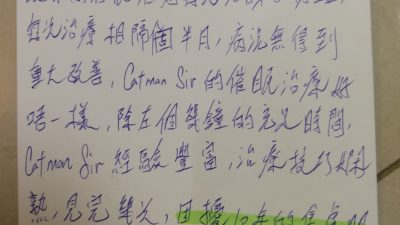 每次治療相隔個半月，病況無得到
重大改善，Catman Sir 的催眠治療好
唔一樣，除左個幾鐘的充足時間，
Catman Sir 經驗豐富，治療技巧嫻
熟，見完幾次，困擾10年的焦慮